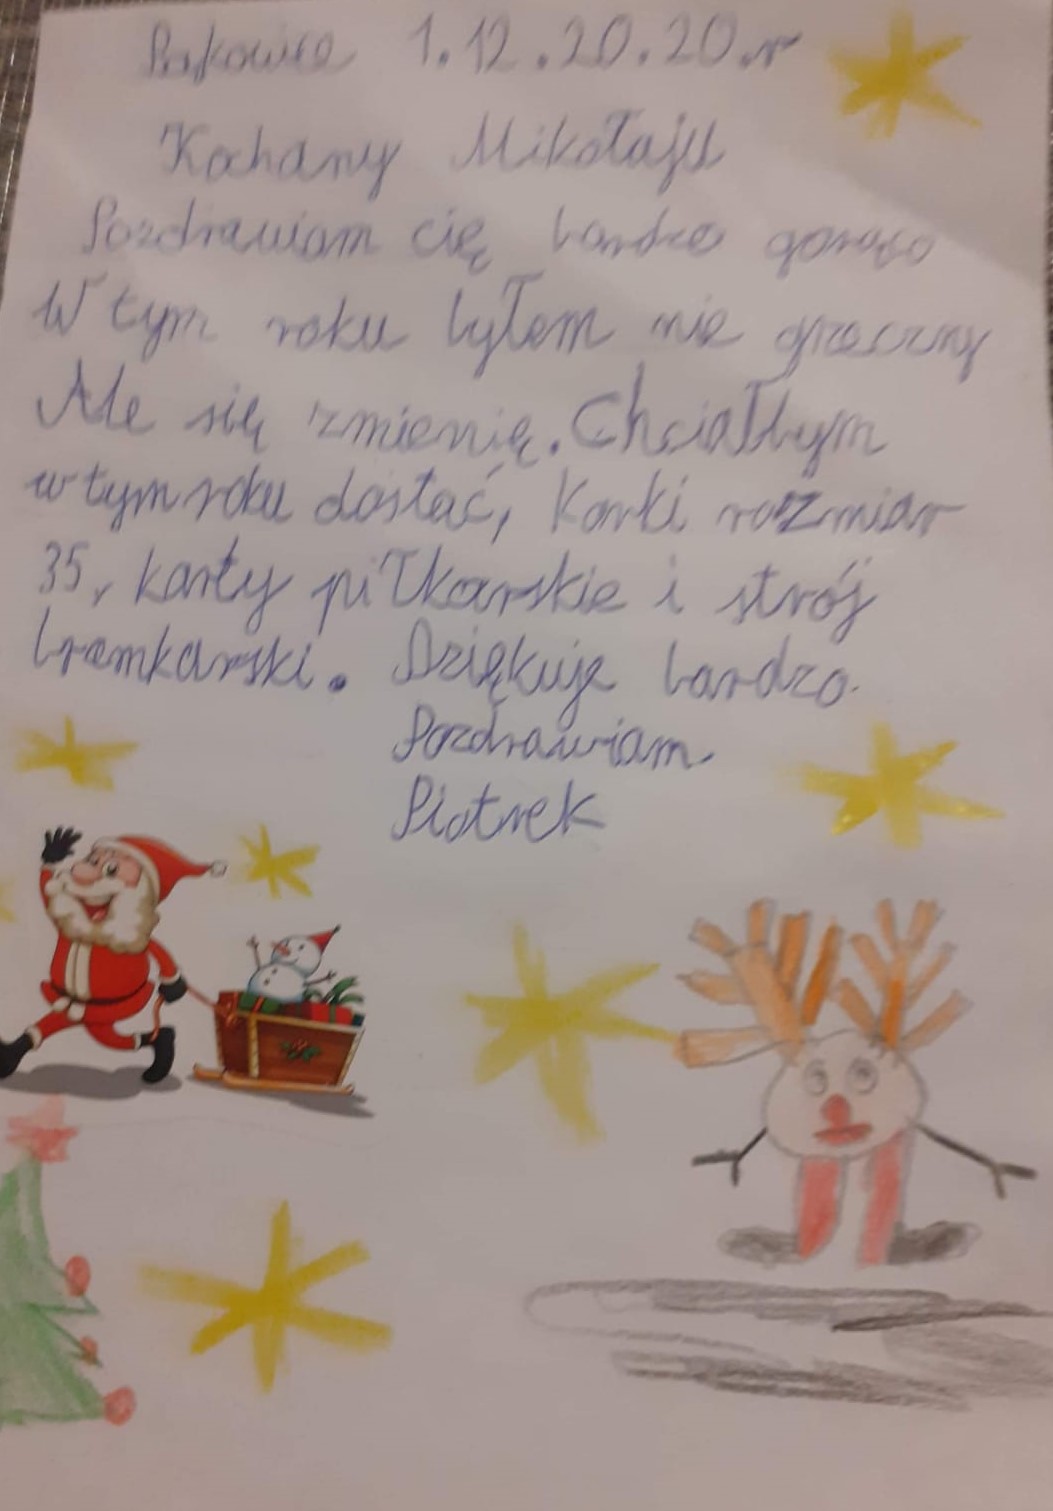 Rakowice 1.12.20.20.r
Kochany Mikołaju
Pozdrawiam cię bardzo gorąco
W tym roku byłem nie grzeczny
Ale się zmienię. Chciałbym
w tym roku dostać, Korki rozmiar
35, karty piłkarskie i strój
bramkarski. Dziękuje bardzo.
Pozdrawiam
Piotrek